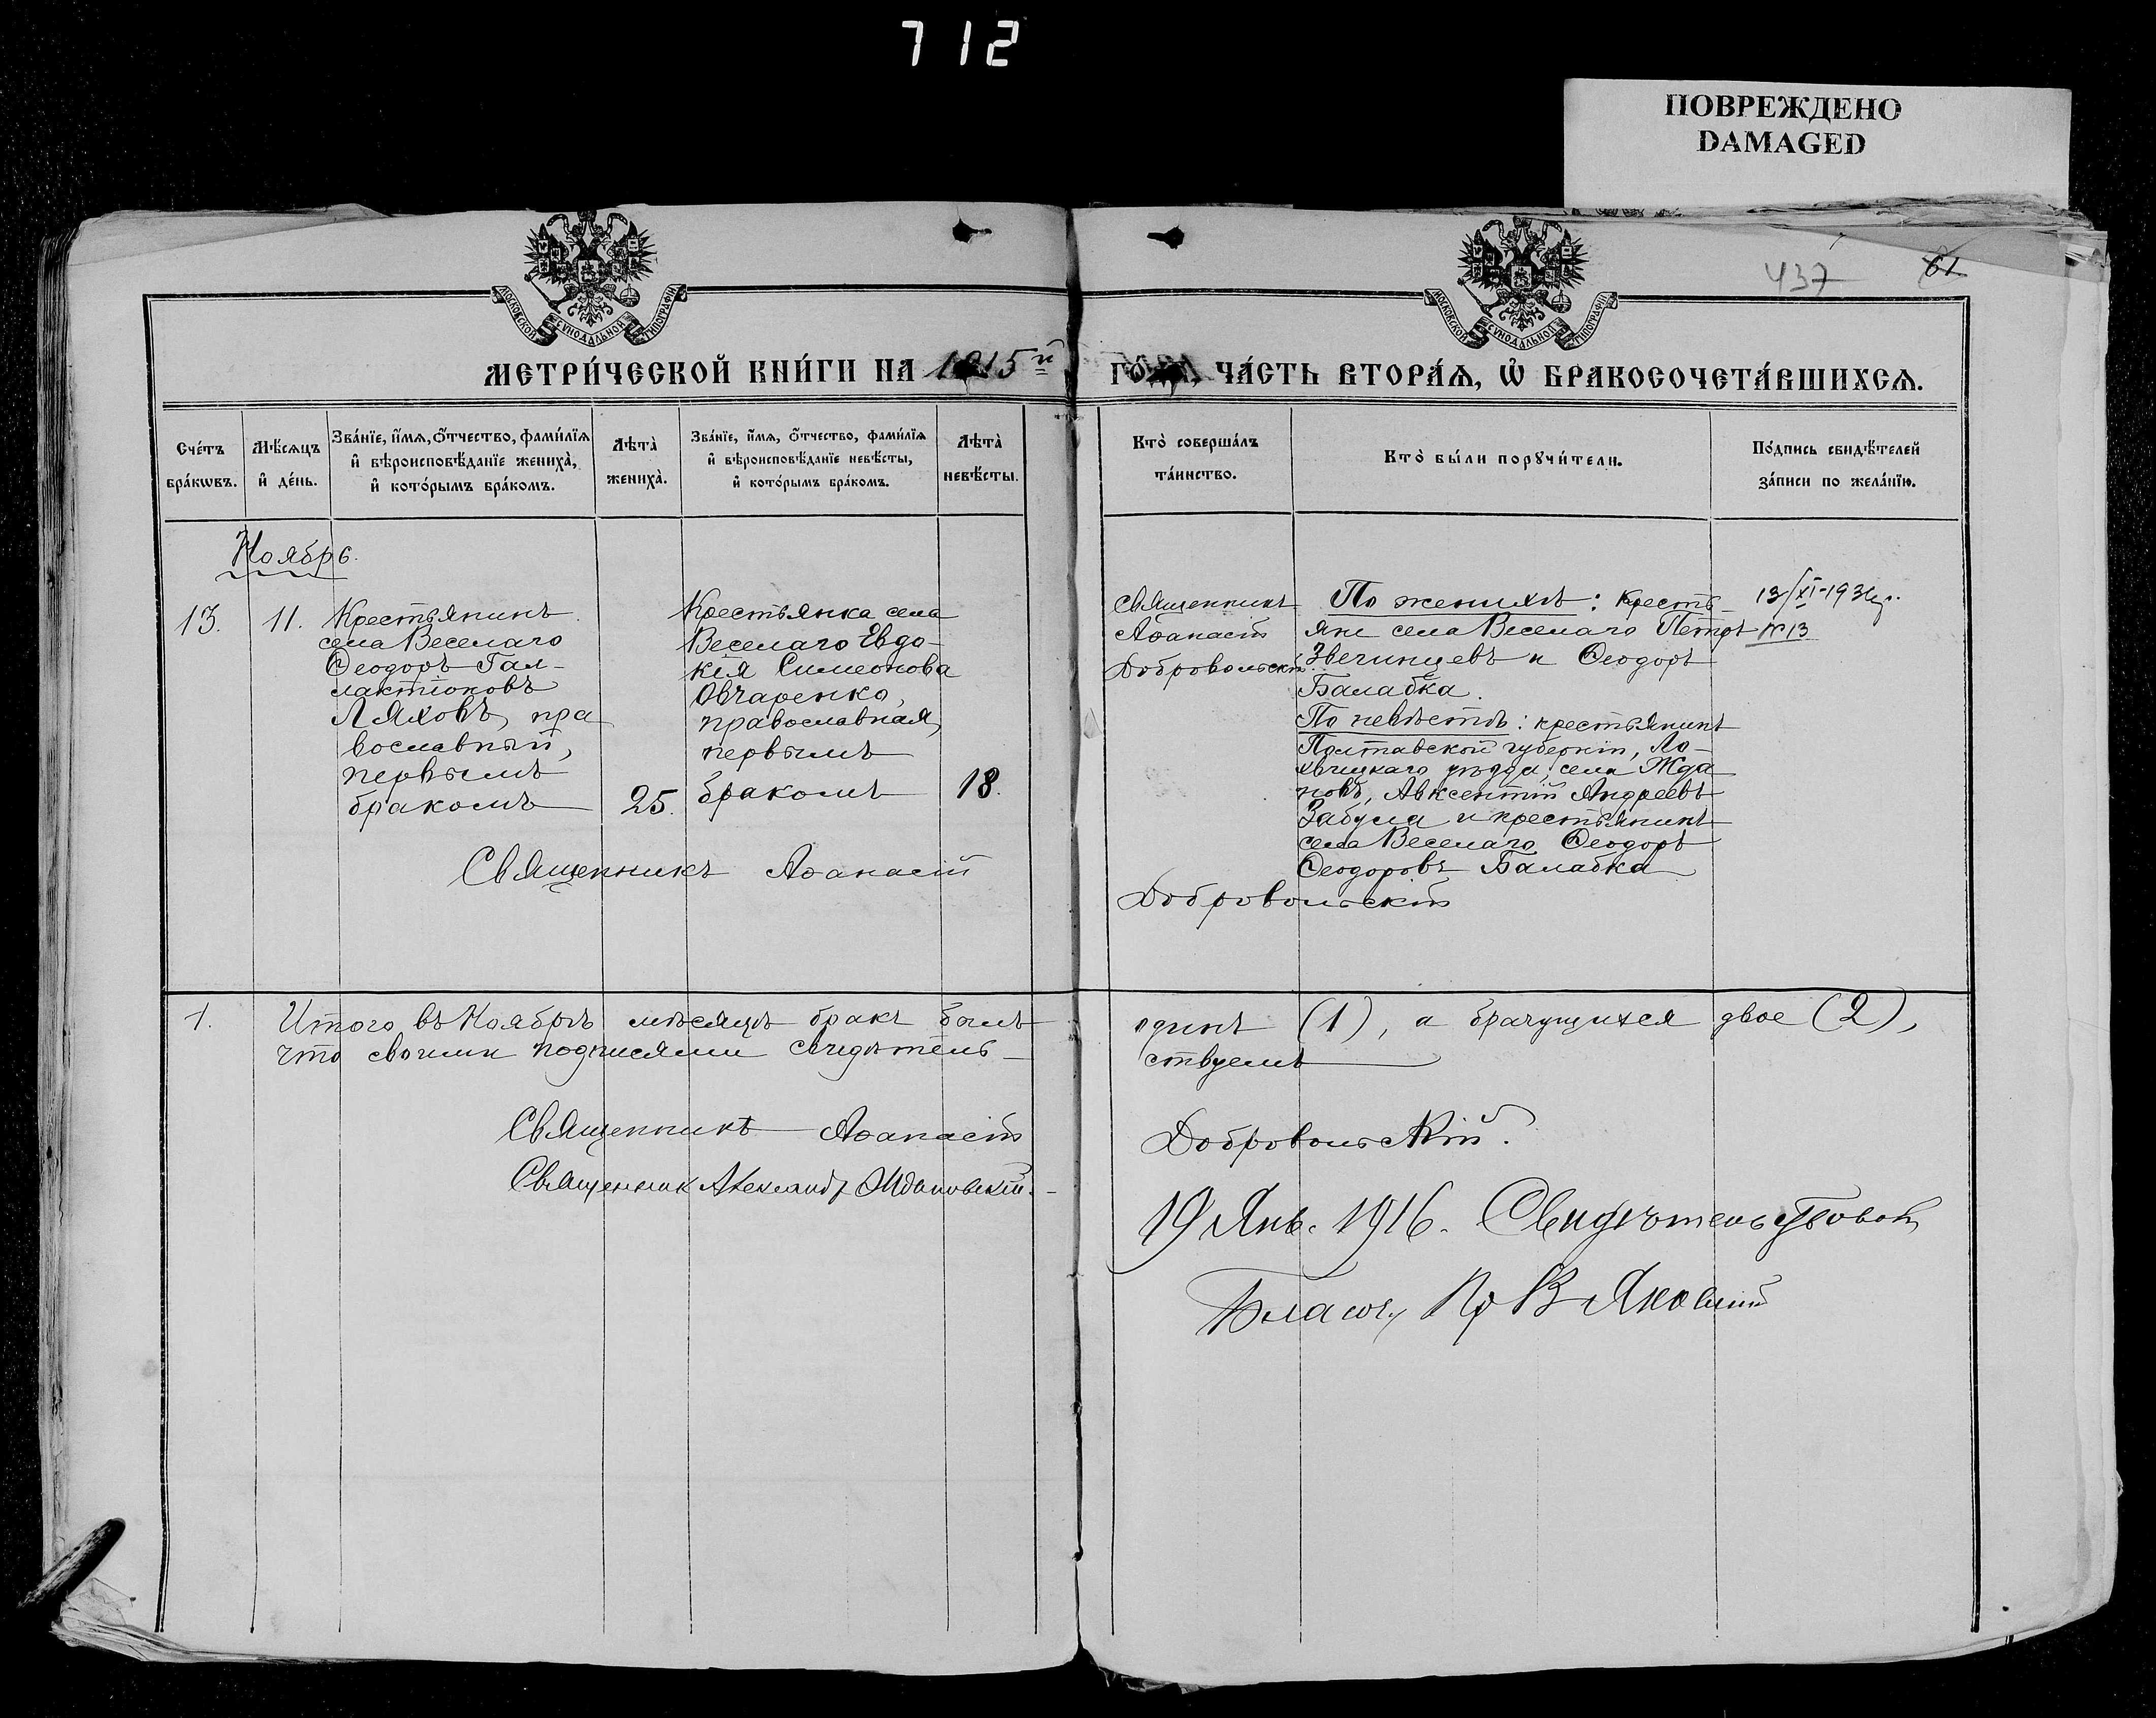 712
ПОВРЕЖДЕНО
DAMAGED
437
61
МОСКОВСКОЙ СѴНОДАЛЬНОЙ ТИПОГРАФІИ
МОСКОВСКОЙ СѴНОДАЛЬНОЙ ТИПОГРАФІИ
МЕТРИ́ЧЕСКОЙ КНИ́ГИ НА 1915й
ЧА́СТЬ ВТОРА́Ѧ, Ѡ БРАКОСОЧЕТА́ВШИХСѦ.
Сче́тъ бра́кѡвъ.
Мѣ́сѧцъ и҆ де́нь.
Зва́нїе, и҆́мѧ, ѻ҆́тчество, фами́лїѧ
и҆ вѣроисповѣ́данїе жениха̀,
и҆ кото́рымъ бра́комъ.
Лѣта̀ жениха̀.
Зва́нїе, и҆́мѧ, ѻ҆́тчество, фами́лїѧ
и҆ вѣроисповѣ́данїе невѣ́сты,
и҆ кото́рымъ бра́комъ.
Лѣта̀ невѣ́сты.
Кто̀ соверша́лъ
та́инство.
Кто̀ бы́ли порꙋчи́тели.
По́дпись свидѣ́телей
за́писи по жела́нїю.
Ноябрь.
13.
11.
Крестьянинъ
села Веселаго
Ѳеодоръ Гал-
лактіоновъ
Ляховъ, пра
вославный,
первымъ
бракомъ
25.
Крестьянка села
Веселаго Евдо-
кія Симеонова
Овчаренко,
православная,
первымъ
бракомъ
18.
Священникъ
Аѳанасій
Добровольскій.
По женихѣ: Кресть-
яне села Веселаго Петръ
Звегинцевъ и Ѳеодоръ
Балабка.
По невѣстѣ: крестьянинъ
Полтавской губерніи, Ло-
хвицкаго уѣзда, села Жда
новъ, Авксентій Андреевъ
Забула и крестьянинъ
села Веселаго Ѳеодоръ
Ѳеодоровъ Балабка
13/XI-193
№13
Священникъ Аѳанасій
Добровольскій
1.
Итого въ Ноябрѣ мѣсяцѣ бракъ былъ одинъ (1), а брачущихся двое (2),
что своими подписями свидѣтель-
ствуемъ
Священникъ Аѳанасій Добровольскій.
Священник Александр
19 Янв. 1916. Свидѣтельствовал
Благоч. Пр В